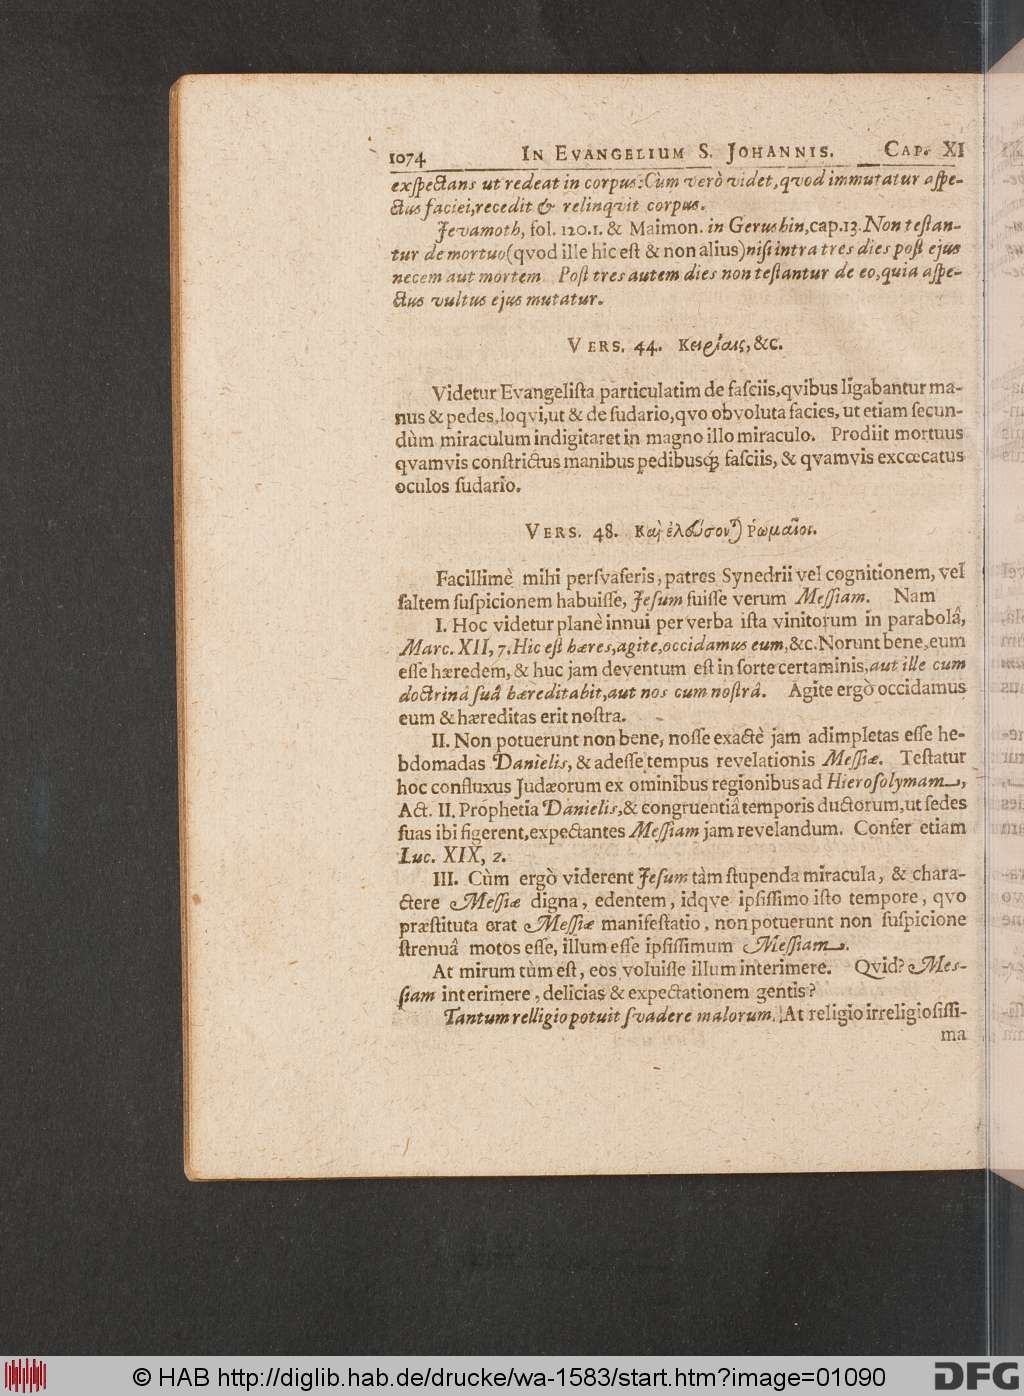 1074 IN EVANGELIUM S. JOHANNIS. CAP. XI
exſpectans ut redeat in corpus: Cùm verò videt, qvod immutatur aſpe-
ctus faciei, recedit & relinqvit corpus.
Jevamoth, fol. 120.1. & Maimon. in Gerushin, cap. 13. Non teſtan-
tur de mortuo (qvod ille hic eſt & non alius) niſi intra tres dies poſt ejus
necem aut mortem Poſt tres autem dies non teſtantur de eo, quia aſpe-
ctus vultus ejus mutatur.
VERS. 44. Κειρίαις, &c.
Videtur Evangeliſta particulatim de faſciis, qvibus ligabantur ma-
nus & pedes, loqvi, ut & de ſudario, qvo obvoluta facies, ut etiam ſecun-
dùm miraculum indigitaret in magno illo miraculo. Prodiit mortuus
qvamvis conſtrictus manibus pedibusq; faſciis, & qvamvis excœcatus
oculos ſudario.
VERS. 48. Καὶ ἐλεύσονται ῥωμαῖοι.
Facillimè mihi perſvaſeris, patres Synedrii vel cognitionem, vel
ſaltem ſuſpicionem habuiſſe, Jeſum fuiſſe verum Meſſiam. Nam
I. Hoc videtur planè innui per verba iſta vinitorum in parabolâ,
Marc. XII, 7. Hic eſt hæres, agite, occidamus eum, &c. Norunt bene, eum
eſſe hæredem, & huc jam deventum eſt in ſorte certaminis, aut ille cum
doctrinâ ſuâ hæreditabit, aut nos cum noſtrâ. Agite ergò occidamus
eum & hæreditas erit noſtra.
II. Non potuerunt non bene, noſſe exactè jam adimpletas eſſe he-
bdomadas Danielis, & adeſſe tempus revelationis Meſſiæ. Teſtatur
hoc confluxus Judæorum ex ominibus regionibus ad Hieroſolymam,
Act. II. Prophetia Danielis, & congruentiâ temporis ductorum, ut ſedes
ſuas ibi figerent, expectantes Meſſiam jam revelandum. Confer etiam
Luc. XIX, 2.
III. Cùm ergò viderent Jeſum tàm ſtupenda miracula, & chara-
ctere Meſſiæ digna, edentem, idqve ipſiſſimo iſto tempore, qvo
præſtituta erat Meſſiæ manifeſtatio, non potuerunt non ſuſpicione
ſtrenuâ motos eſſe, illum eſſe ipſiſſimum Meſſiam.
At mirum tùm eſt, eos voluiſſe illum interimere. Qvid? Mes-
ſiam interimere, delicias & expectationem gentis?
Tantum relligio potuit ſvadere malorum. At religio irreligioſiſſi-
ma
© HAB http://diglib.hab.de/drucke/wa-1583/start.htm?image=01090
DFG